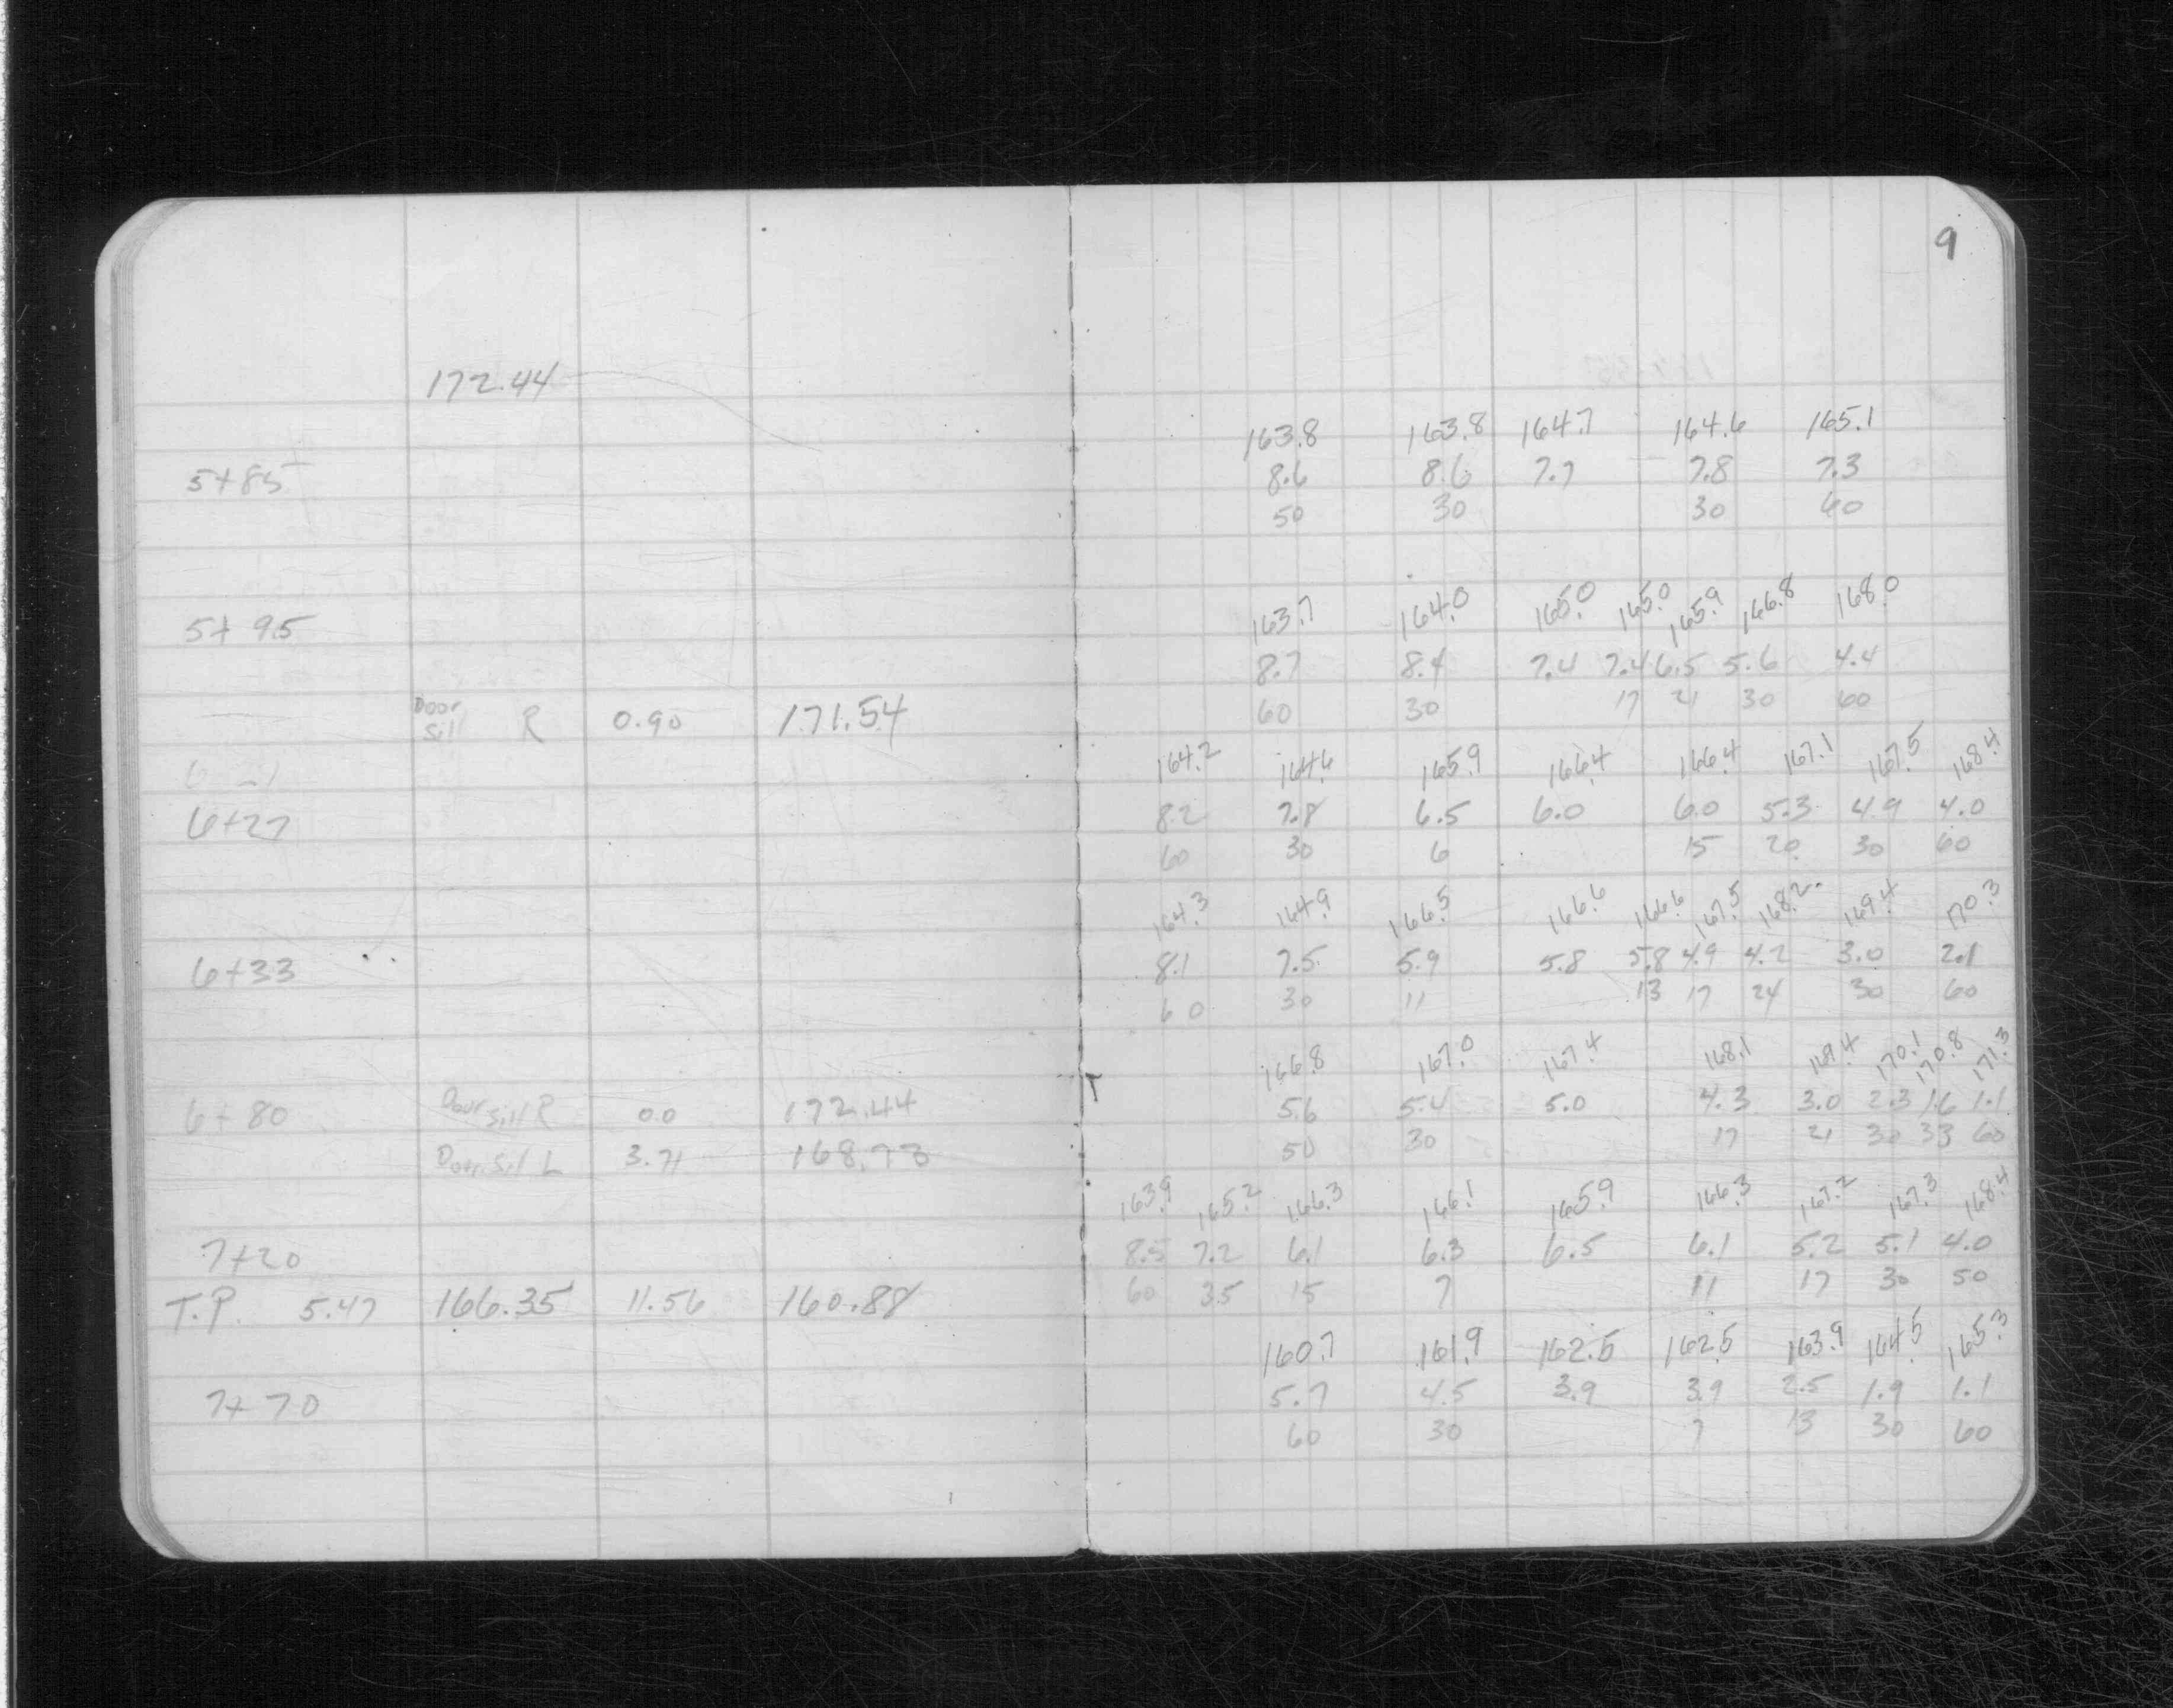 9
172.44
163.8 163.8 164.7 164.6 165.1
5+85 8.6 8.6 7.7 7.8 7.3
50 30 30 60
163.7 164.0 165.0 165.0 165.9 166.8 168.0
5+95 8.7 8.4 7.4 7.4 6.5 5.6 4.4
60 30 17 21 30 60
Door
Sill R 0.90 171.54
164.2 164.6 165.9 166.4 166.4 167.1 167.5 168.4
6+27 8.2 7.8 6.5 6.0 6.0 5.3 4.9 4.0
60 30 6 15 20 30 60
164.3 164.9 166.5 166.6 166.6 167.5 168.2 169.4 170.3
6+33 8.1 7.5 5.9 5.8 5.8 4.9 4.2 3.0 2.1
60 30 11 13 17 24 30 60
166.8 167.0 167.4 168.1 169.4 170.1 170.8 171.3
6+80 Door Sill R 0.0 172.44 5.6 5.4 5.0 4.3 3.0 2.3 1.6 1.1
Door Sill L 3.71 168.73 50 30 17 21 30 33 60
163.9 165.2 166.3 166.1 165.9 166.3 167.2 167.3 168.4
7+20 8.5 7.2 6.1 6.3 6.5 6.1 5.2 5.1 4.0
T.P. 5.47 166.35 11.56 160.88 60 35 15 7 11 17 30 50
160.7 161.9 162.5 162.5 163.9 164.5 165.3
7+70 5.7 4.5 3.9 3.9 2.5 1.9 1.1
60 30 7 13 30 60